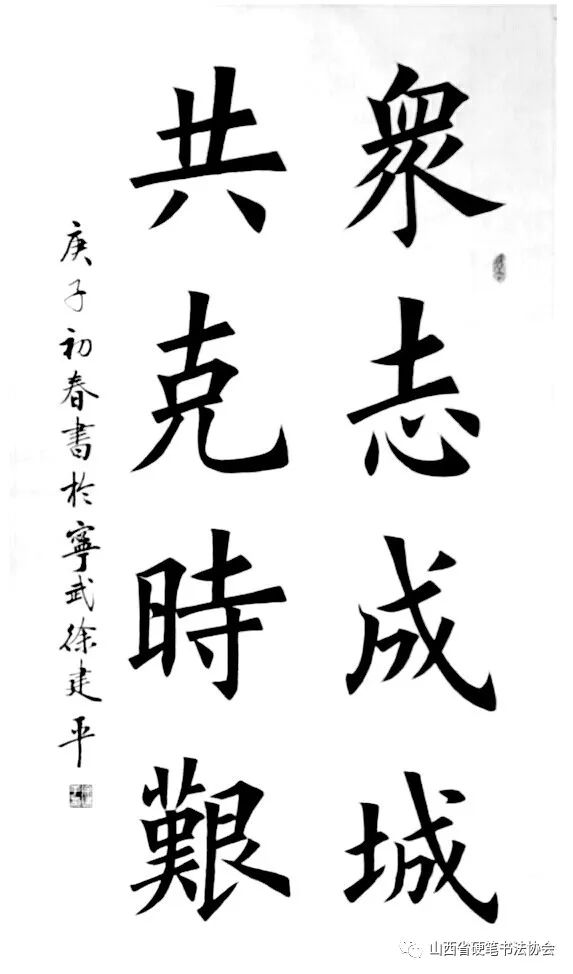 眾志成城
共克時艱
庚子初春書於寧武徐建平
山西省硬笔书法协会